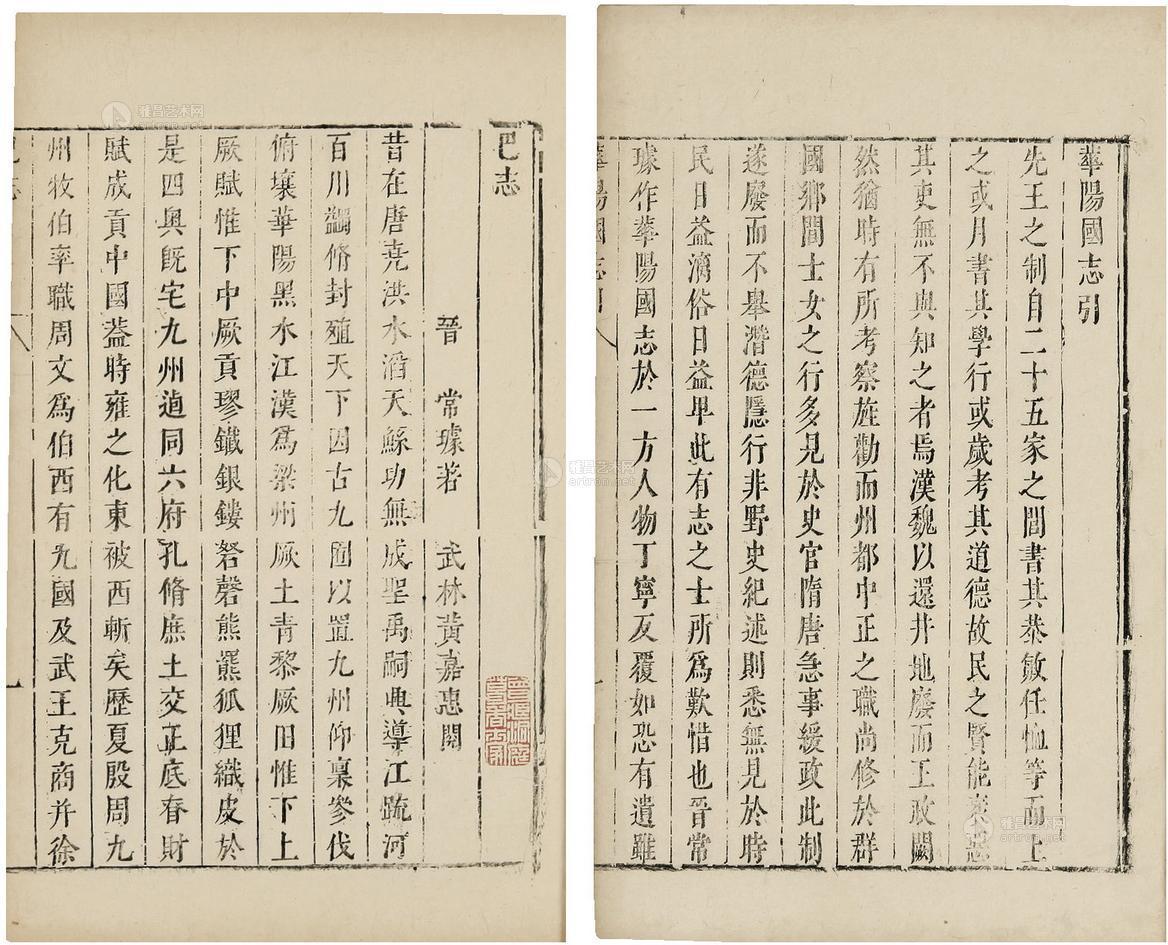 華陽國志引
先王之制自二十五家之閭書其恭敏任恤等而上
之或月書其學行或歲考其道德故民之賢能
其吏無不與知之者焉漢魏以還井地廢而王政闕
然猶時有所考察旌勸而州都中正之職尚修於群
國鄉閭士女之行多見於史官隋唐急事緩政此制
遂廢而不舉潛德隱行非野史紀述則悉無見於時
民日益漓俗日益卑此有志之士所爲歎惜也晉常
璩作華陽國志於一方人物丁寧反覆如恐有遺雖
華陽國志引
巴志
晉 常璩著 武林黃嘉惠閱
昔在唐堯洪水滔天鯀功無成聖禹嗣興導江疏河
百川蠲脩封殖天下因古九囿以置九州仰稟參伐
俯壤華陽黑水江漢爲梁州厥土青黎厥田惟下上
厥賦惟下中厥貢璆鐵銀鏤砮磬熊羆狐狸織皮於
是四奥既宅九州逌同六府孔脩庶土交正底春財
賦成貢中國蓋時雍之化東被西漸矣歷夏殷周九
州牧伯率職周文爲伯西有九國及武王克商并徐
巴志
雅昌艺术网
雅昌艺术网
artron.net
雅昌艺术网
artron.net